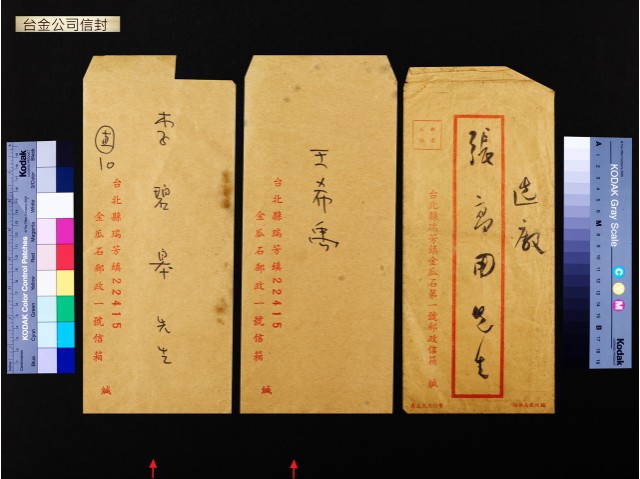 台金公司信封
直
10
李碧皋 先生
台北縣瑞芳鎮22415
金瓜石郵政一號信箱 緘
王希禹
台北縣瑞芳鎮22415
金瓜石郵政一號信箱 緘
選廠
張高田先生
台北縣瑞芳鎮金瓜石第一號郵政信箱 緘
Kodak
KODAK Color Control Patches
Blue
Cyan
Green
Yellow
Red
Magenta
White
Black
KODAK Gray Scale
A 1 2 3 4 5 6 M 8 9 10 11 12 13 14 15 B 17 18 19
C Y M
Kodak